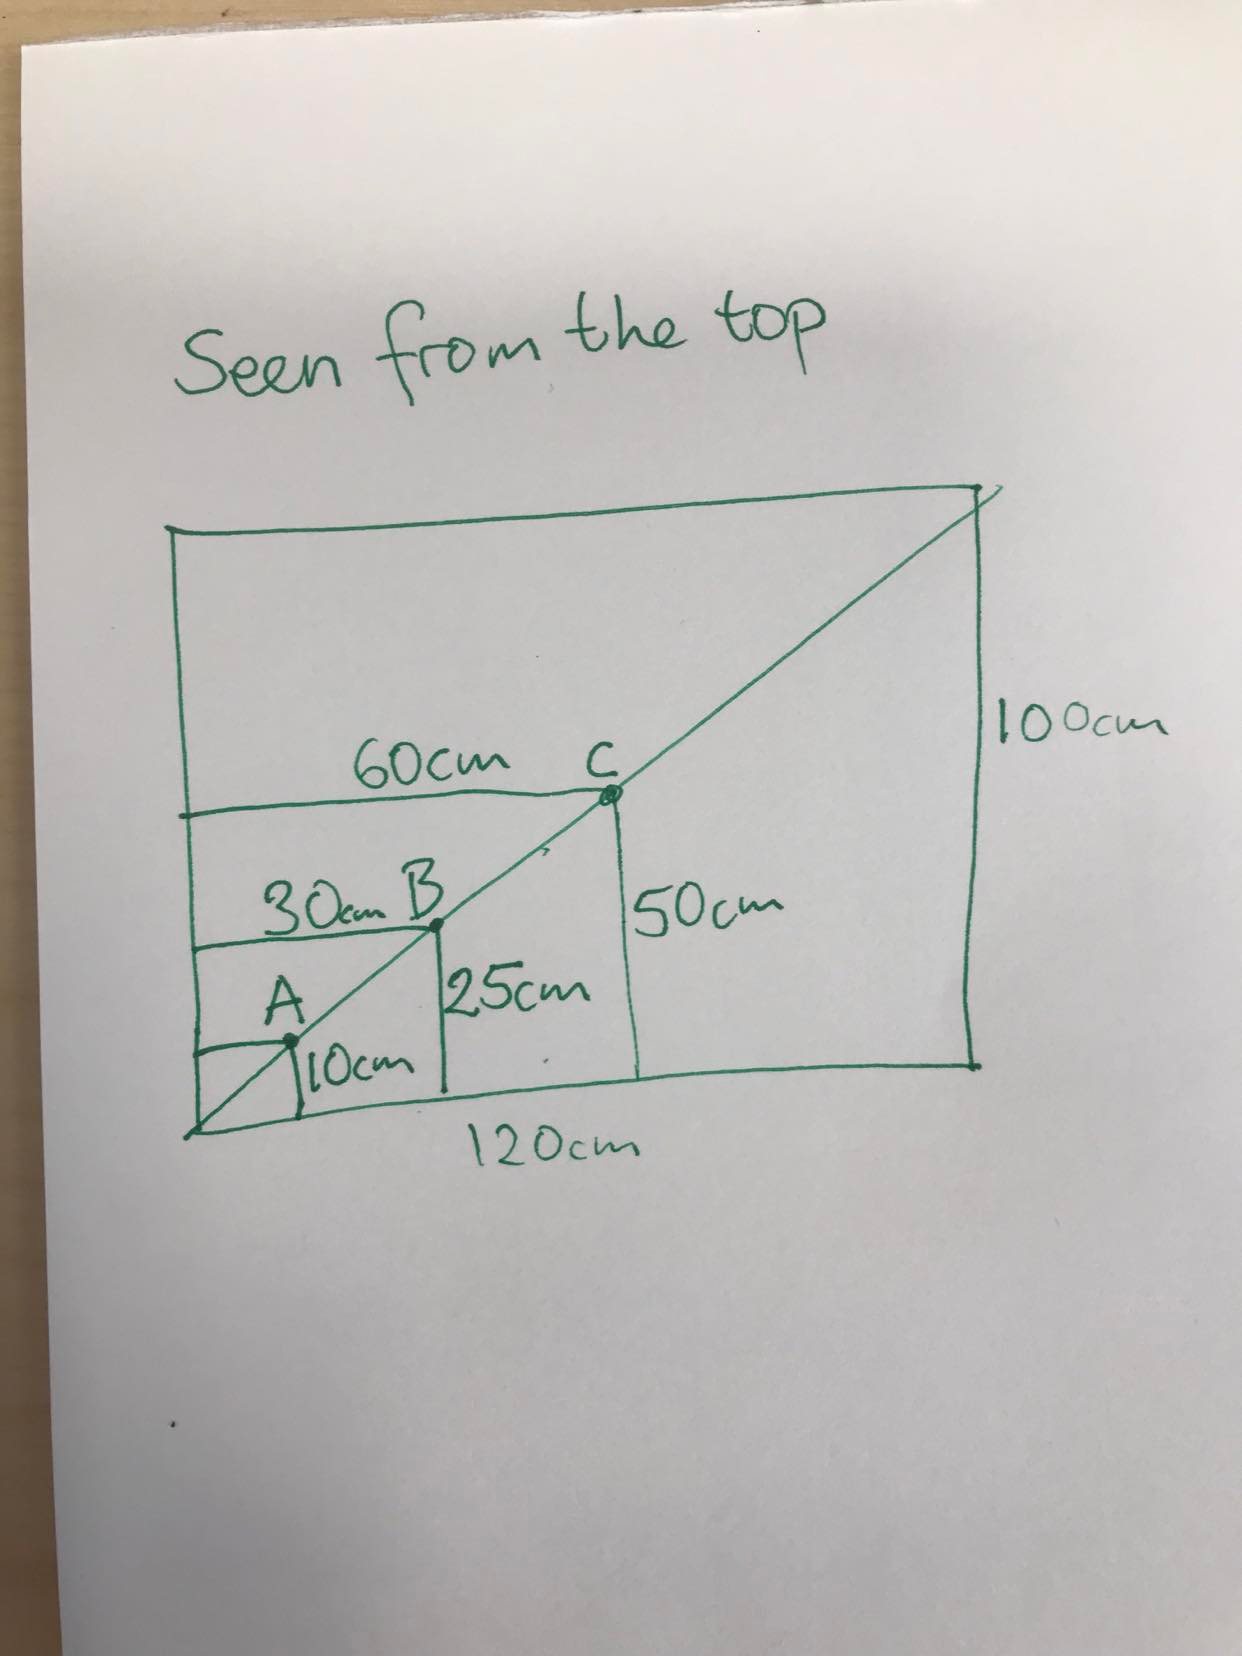 Seen from the top
60cm C
100cm
30cm B
50cm
A
25cm
10cm
120cm